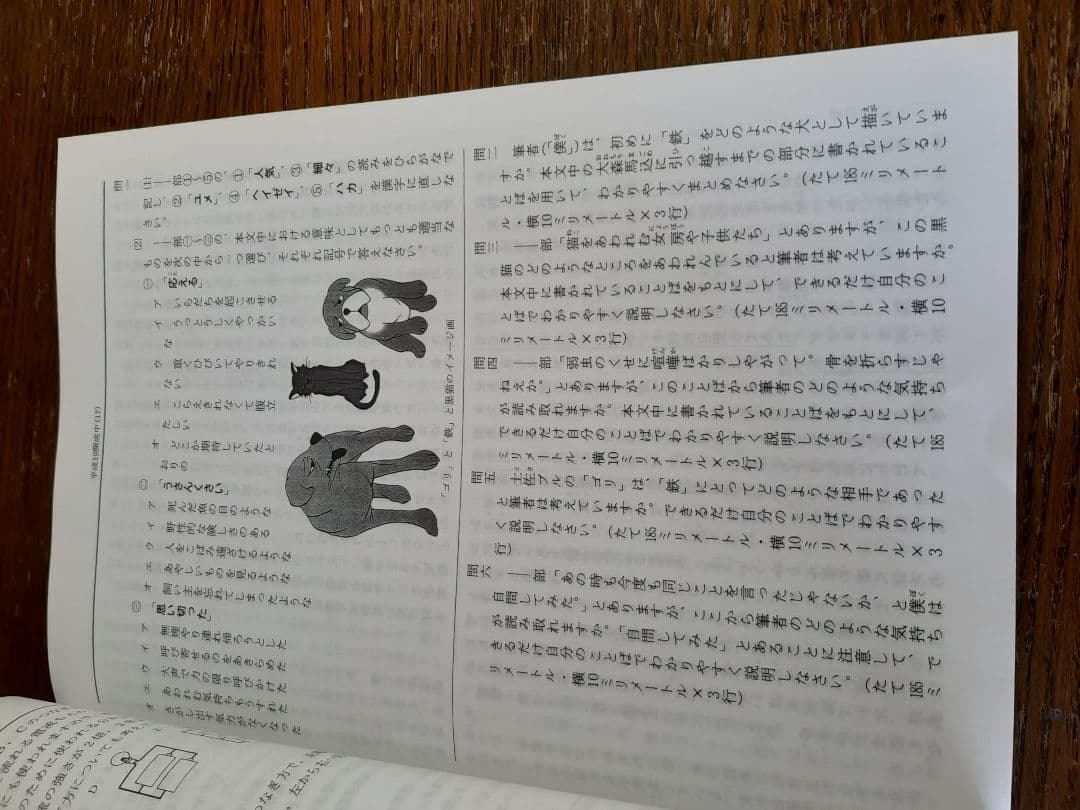 平成19開成中(17)
問一 (1) ――部①～⑤の、①「人気」、③「細々」の読みをひらがなで
記し、②「ユメ」、④「ヘイゼイ」、⑤「ハカ」を漢字に直しな
さい。
(2) ――部㊀～㊂の、本文中における意味としてもっとも適当な
ものを次の中から一つ選び、それぞれ記号で答えなさい。
㊀「応える」
ア いらだちを起こさせる
イ うっとうしくやっかい
な
ウ 重くひびいてやりきれ
ない
エ こらえきれなくて腹立
たしい
オ どこか期待していたと
おりの
㊁「うさんくさい」
ア 死んだ魚の目のような
イ 野性的な険しさのある
ウ 人をこばみ遠ざけるような
エ あやしいものを見るような
オ 飼い主を忘れてしまったような
㊂「思い切った」
ア 無理やり連れ帰ろうとした
イ 呼び寄せるのをあきらめた
ウ 大声で力の限り呼びかけた
エ あわれむ気持ちもうすれた
オ さがし出す気力がなくなった
「ゴリ」と「鉄」と黒猫のイメージ画
問二 筆者(僕)は、初めに「鉄」をどのような犬として描いていま
すか。本文中の大森馬込に引っ越すまでの部分に書かれているこ
とばを用いて、わかりやすくまとめなさい。(たて185ミリメート
ル・横10ミリメートル×3行)
問三 ――部「猫をあわれむ女房や子供たち」とありますが、この黒
猫のどのようなところをあわれんでいると筆者は考えていますか。
本文中に書かれていることばをもとにして、できるだけ自分のこ
とばでわかりやすく説明しなさい。(たて185ミリメートル・横10
ミリメートル×3行)
問四 ――部「弱虫のくせに喧嘩ばかりしやがって。骨を折らすじゃ
ねえか。」とありますが、このことばから筆者のどのような気持ち
が読み取れますか。本文中に書かれていることばをもとにして、
できるだけ自分のことばでわかりやすく説明しなさい。(たて185
ミリメートル・横10ミリメートル×3行)
問五 土佐ブルの「ゴリ」は、「鉄」にとってどのような相手であった
と筆者は考えていますか。できるだけ自分のことばでわかりやす
く説明しなさい。(たて185ミリメートル・横10ミリメートル×3
行)
問六 ――部「あの時も今度も同じことを言ったじゃないか、と僕は
自問してみた。」とありますが、ここから筆者のどのような気持ち
が読み取れますか。「自問してみた」とあることに注意して、で
きるだけ自分のことばでわかりやすく説明しなさい。(たて185ミ
リメートル・横10ミリメートル×3行)
流れる電流も
にも使われますの
のために使われる
流の強さが2倍、3
方についてもあ
D
つなぎ方で、